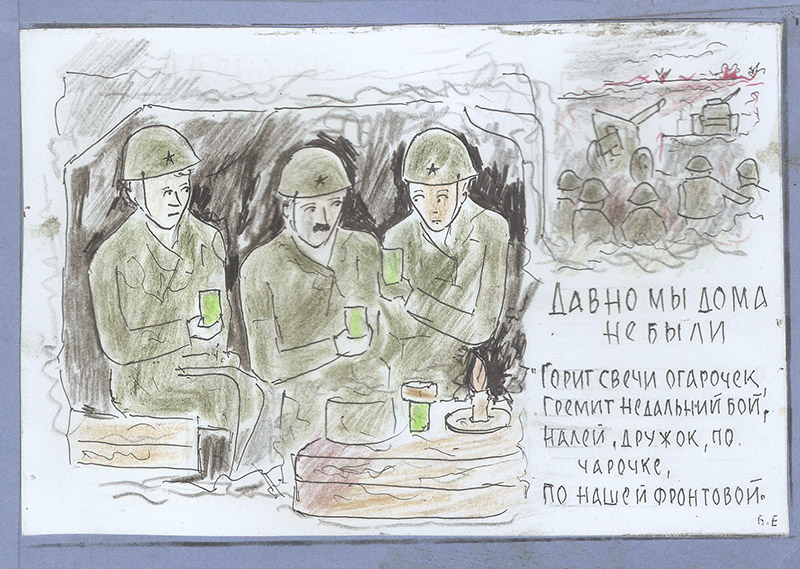 ДАВНО МЫ ДОМА
НЕ БЫЛИ
"ГОРИТ СВЕЧИ ОГАРОЧЕК,
ГРЕМИТ НЕДАЛЬНИЙ БОЙ,
НАЛЕЙ, ДРУЖОК, ПО
ЧАРОЧКЕ,
ПО НАШЕЙ ФРОНТОВОЙ"
Б.Е